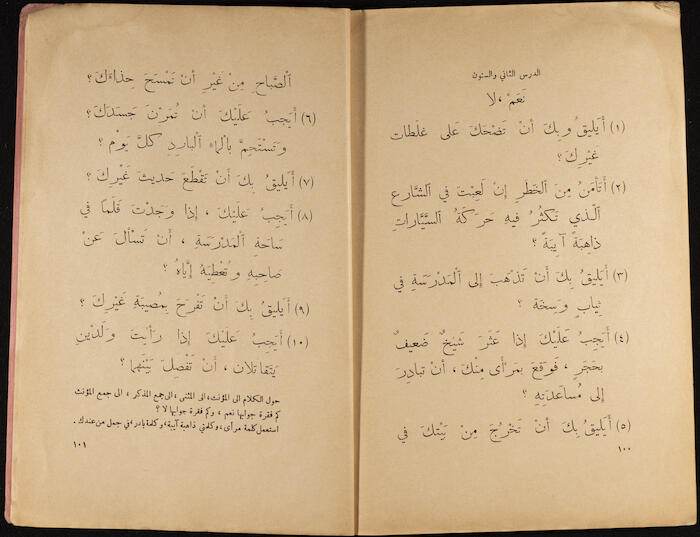 الدرس الثاني والستون
نَعَمْ ، لا
(١) أَيَليقُ بِكَ أَنْ تَضْحَكَ عَلى غَلَطات
غَيْرِكَ ؟
(٢) أَتَأْمَنُ مِنَ ٱلخَطَرِ إِنْ لَعِبْتَ في ٱلشَّارِعِ
ٱلَّذي تَكْثُرُ فيهِ حَرَكَةُ ٱلسَّيَّاراتِ
ذاهِبَةً آيِبَةً ؟
(٣) أَيَليقُ بِكَ أَنْ تَذْهَبَ إِلى ٱلمَدْرَسَةِ في
ثِيابٍ وَسِخَةٍ ؟
(٤) أَيَجِبُ عَلَيْكَ إِذا عَثَرَ شَيْخٌ ضَعيفٌ
بِحَجَرٍ ، فَوَقَعَ بِمَرْأى مِنْكَ ، أَنْ تُبادِرَ
إِلى مُساعَدَتِهِ ؟
(٥) أَيَليقُ بِكَ أَنْ تَخْرُجَ مِنْ بَيْتِكَ في
١٠٠
ٱلصَّباحِ مِنْ غَيْرِ أَنْ تَمْسَحَ حِذاءَكَ ؟
(٦) أَيَجِبُ عَلَيْكَ أَنْ تُمَرِّنَ جَسَدَكَ
وَتَسْتَحِمَّ بِٱلماءِ ٱلبارِدِ كُلَّ يَوْمٍ ؟
(٧) أَيَليقُ بِكَ أَنْ تَقْطَعَ حَديثَ غَيْرِكَ ؟
(٨) أَيَجِبُ عَلَيْكَ ، إِذا وَجَدْتَ قَلَمًا في
ساحَةِ ٱلمَدْرَسَةِ ، أَنْ تَسْأَلَ عَنْ
صاحِبِهِ وَتُعْطِيَهُ إِيَّاهُ ؟
(٩) أَيَليقُ بِكَ أَنْ تَفْرَحَ بِمُصيبَةِ غَيْرِكَ ؟
(١٠) أَيَجِبُ عَلَيْكَ إِذا رَأَيْتَ وَلَدَيْنِ
يَتَقاتَلانِ ، أَنْ تَفْصِلَ بَيْنَهُما ؟
حول الكلام الى المؤنث ، الى المثنى ، الى جمع المذكر ، الى جمع المؤنث
كم فقرة جوابها نعم ، وكم فقرة جوابها لا ؟
استعمل كلمة مرأى ، وكلمتي ذاهبة آيبة ، وكلمة بادر ، في جمل من عندك .
١٠١